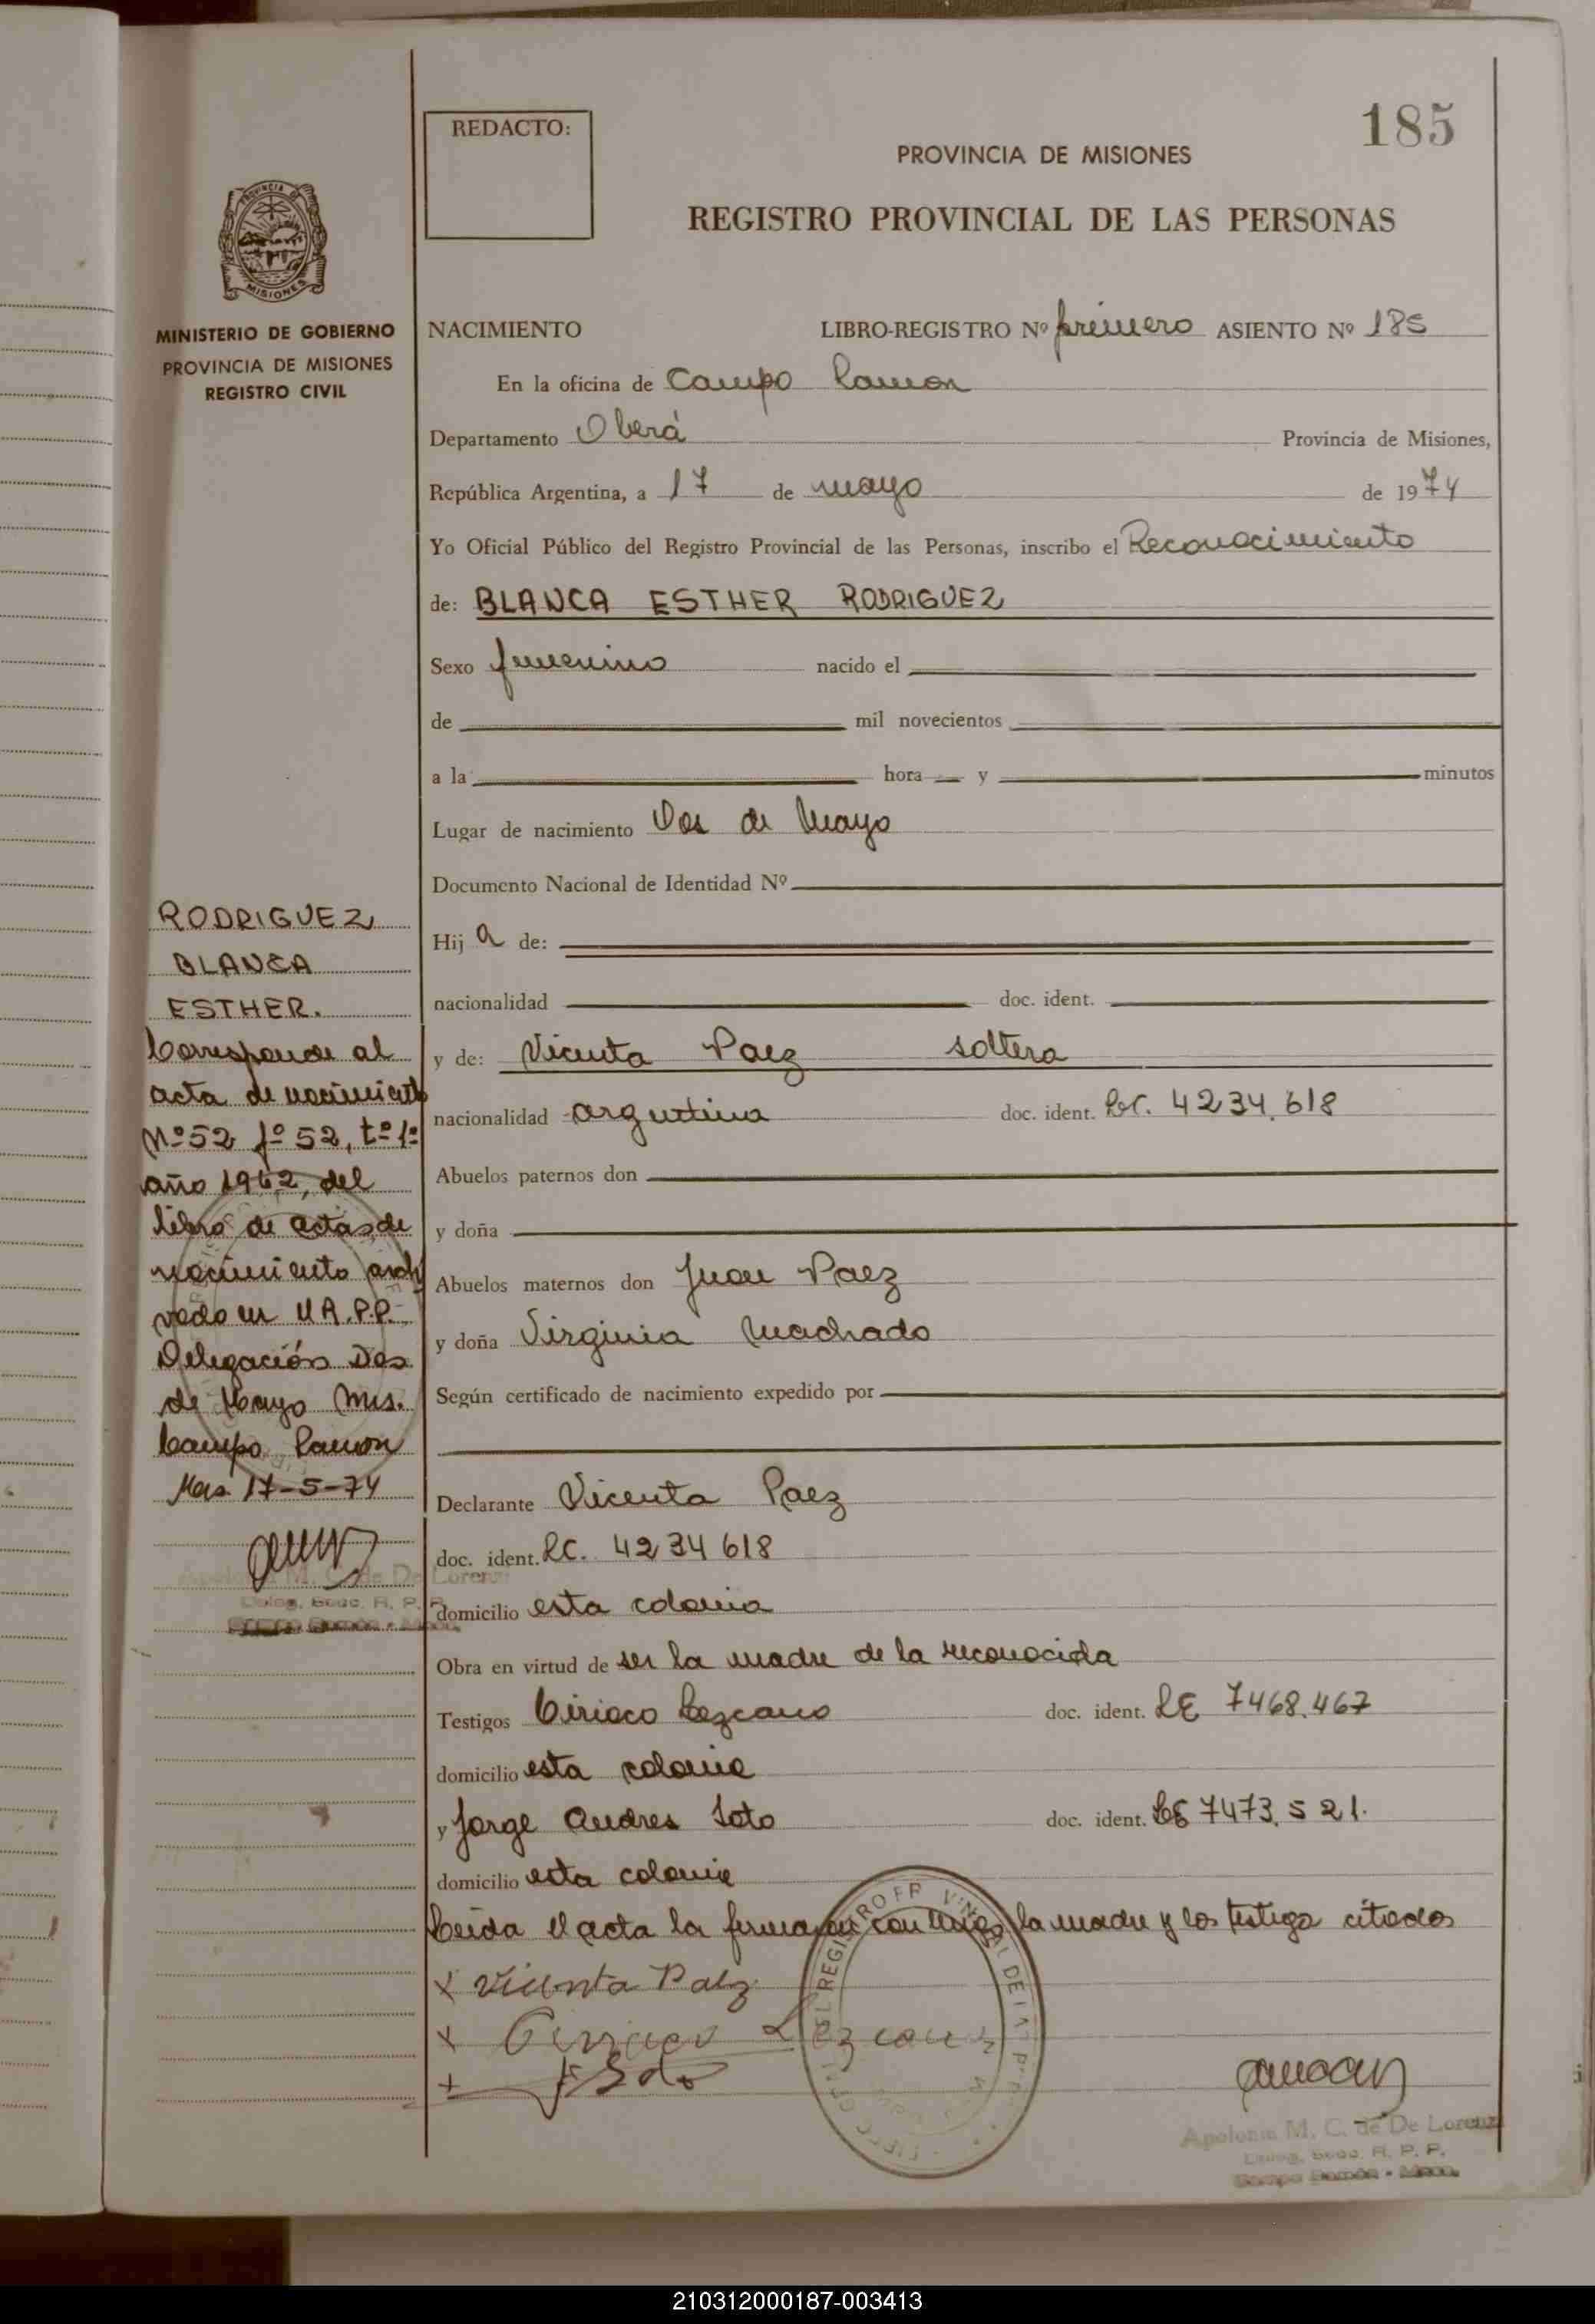 185
REDACTO:
PROVINCIA DE MISIONES
REGISTRO PROVINCIAL DE LAS PERSONAS
PROVINCIA DE
MISIONES
MINISTERIO DE GOBIERNO
PROVINCIA DE MISIONES
REGISTRO CIVIL
NACIMIENTO LIBRO-REGISTRO Nº primero ASIENTO Nº 185
En la oficina de Campo Ramon
Departamento Oberá Provincia de Misiones,
República Argentina, a 17 de mayo de 1974
Yo Oficial Público del Registro Provincial de las Personas, inscribo el Reconocimiento
de: BLANCA ESTHER RODRIGUEZ
Sexo femenino nacido el
de mil novecientos
a la hora y minutos
Lugar de nacimiento Dos de Mayo
Documento Nacional de Identidad Nº
Hij a de:
nacionalidad doc. ident.
y de: Vicenta Paez soltera
nacionalidad argentina doc. ident. LC. 4234.618
Abuelos paternos don
y doña
Abuelos maternos don Juan Paez
y doña Virginia Machado
Según certificado de nacimiento expedido por
Declarante Vicenta Paez
doc. ident. LC. 4234618
domicilio esta colonia
Obra en virtud de ser la madre de la reconocida
Testigos Ciriaco Lezcano doc. ident. LE 7468.467
domicilio esta colonia
y Jorge Andres Soto doc. ident. LE 7473.521.
domicilio esta colonia
Leida el acta la firman con migo la madre y los testigos citados
x Vicenta Paez
x Ciriaco Lezcano
x J Soto
Apolonia M. C. de De Lorenzi
Deleg. Secc. R. P. P.
Campo Ramón - Mnes.
RODRIGUEZ
BLANCA
ESTHER.
Corresponde al
acta de nacimiento
Nº 52 fº 52, tº 1º
año 1962, del
libro de actas de
nacimiento archi
vado en
Delegación Dos
de Mayo Mis.
Campo Ramon
Mes 17-5-74
Apolonia M. C. de De Lorenzi
Deleg. Secc. R. P. P.
Campo Ramón - Mnes.
210312000187-003413